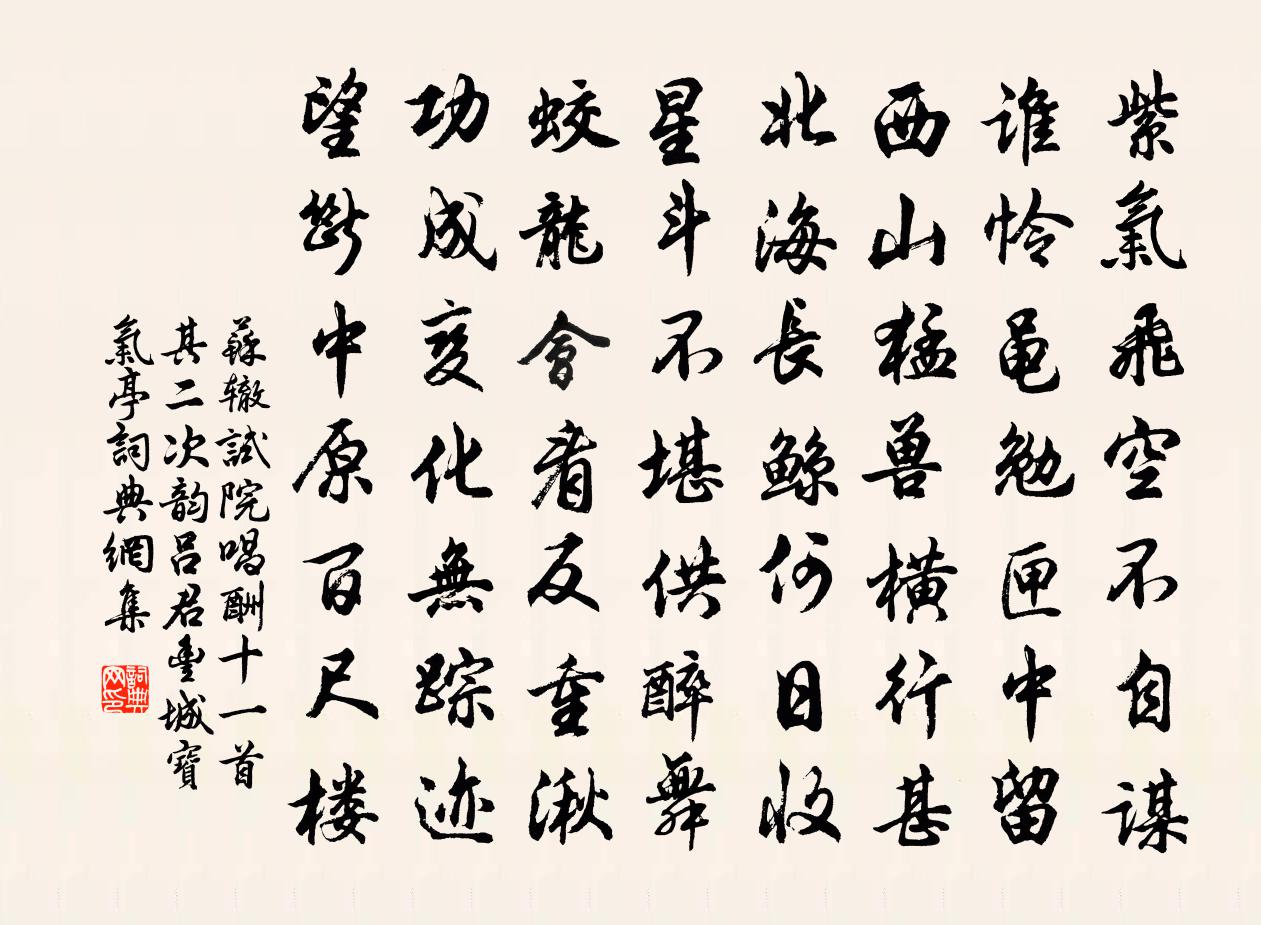 紫氣飛空不自謀
谁怜黽勉匣中留
西山猛兽橫行甚
北海長鲸何日收
星斗不堪供醉舞
蛟龍會看反重湫
功成变化無踪迹
望斷中原百尺楼
蘇辙試院唱酬十一首
其二次韵呂君豐城寶
氣亭詞典網集
詞典网印